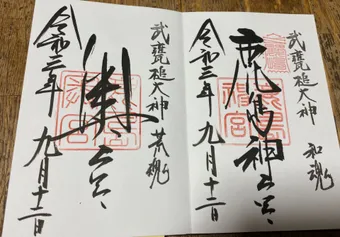 武甕槌大神 和魂
鹿島神宮
令和三年九月十二日
武甕槌大神 荒魂
奥宮
令和三年九月十二日